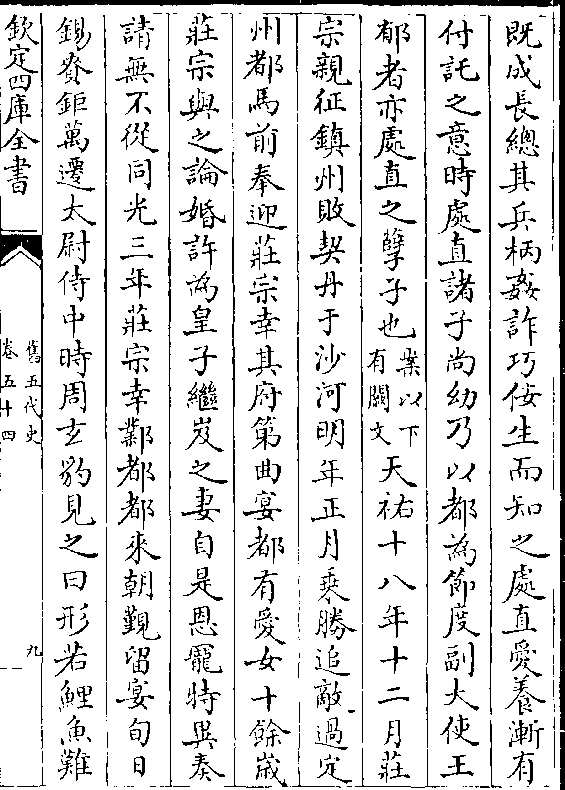 既成長總其兵柄姦詐巧佞生而知之處直愛養漸有
付託之意時處直諸子尚幼乃以都為節度副大使王
郁者亦處直之孽子也案以下有闕文天祐十八年十二月莊
宗親征鎮州敗契丹于沙河明年正月乘勝追敵過定
州都馬前奉迎莊宗幸其府第曲宴都有愛女十餘歳
莊宗與之論婚許為皇子繼岌之妻自是恩寵特異奏
請無不從同光三年莊宗幸鄴都都來朝覲留宴旬日
錫賚鉅萬遷太尉侍中時周玄豹見之曰形若鯉魚難
欽定四庫全書
舊五代史
卷五十四
九